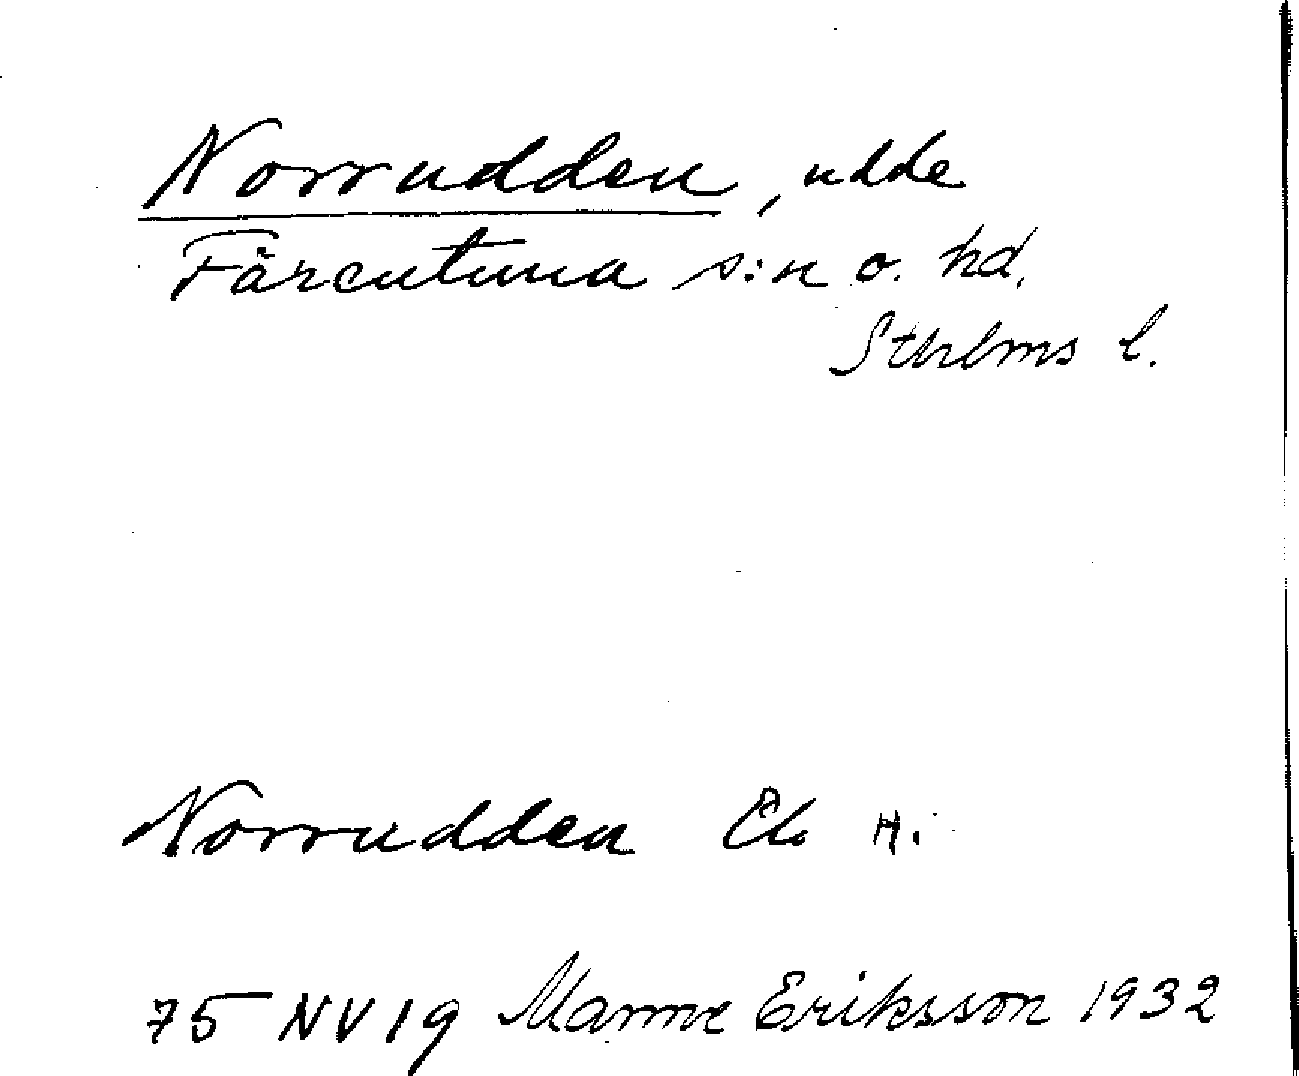 Norrudden, udde
Färentuna s:n o. hd.
Sthlms l.
Norrudden Ek. H.
75 NV 19 Manne Eriksson 1932